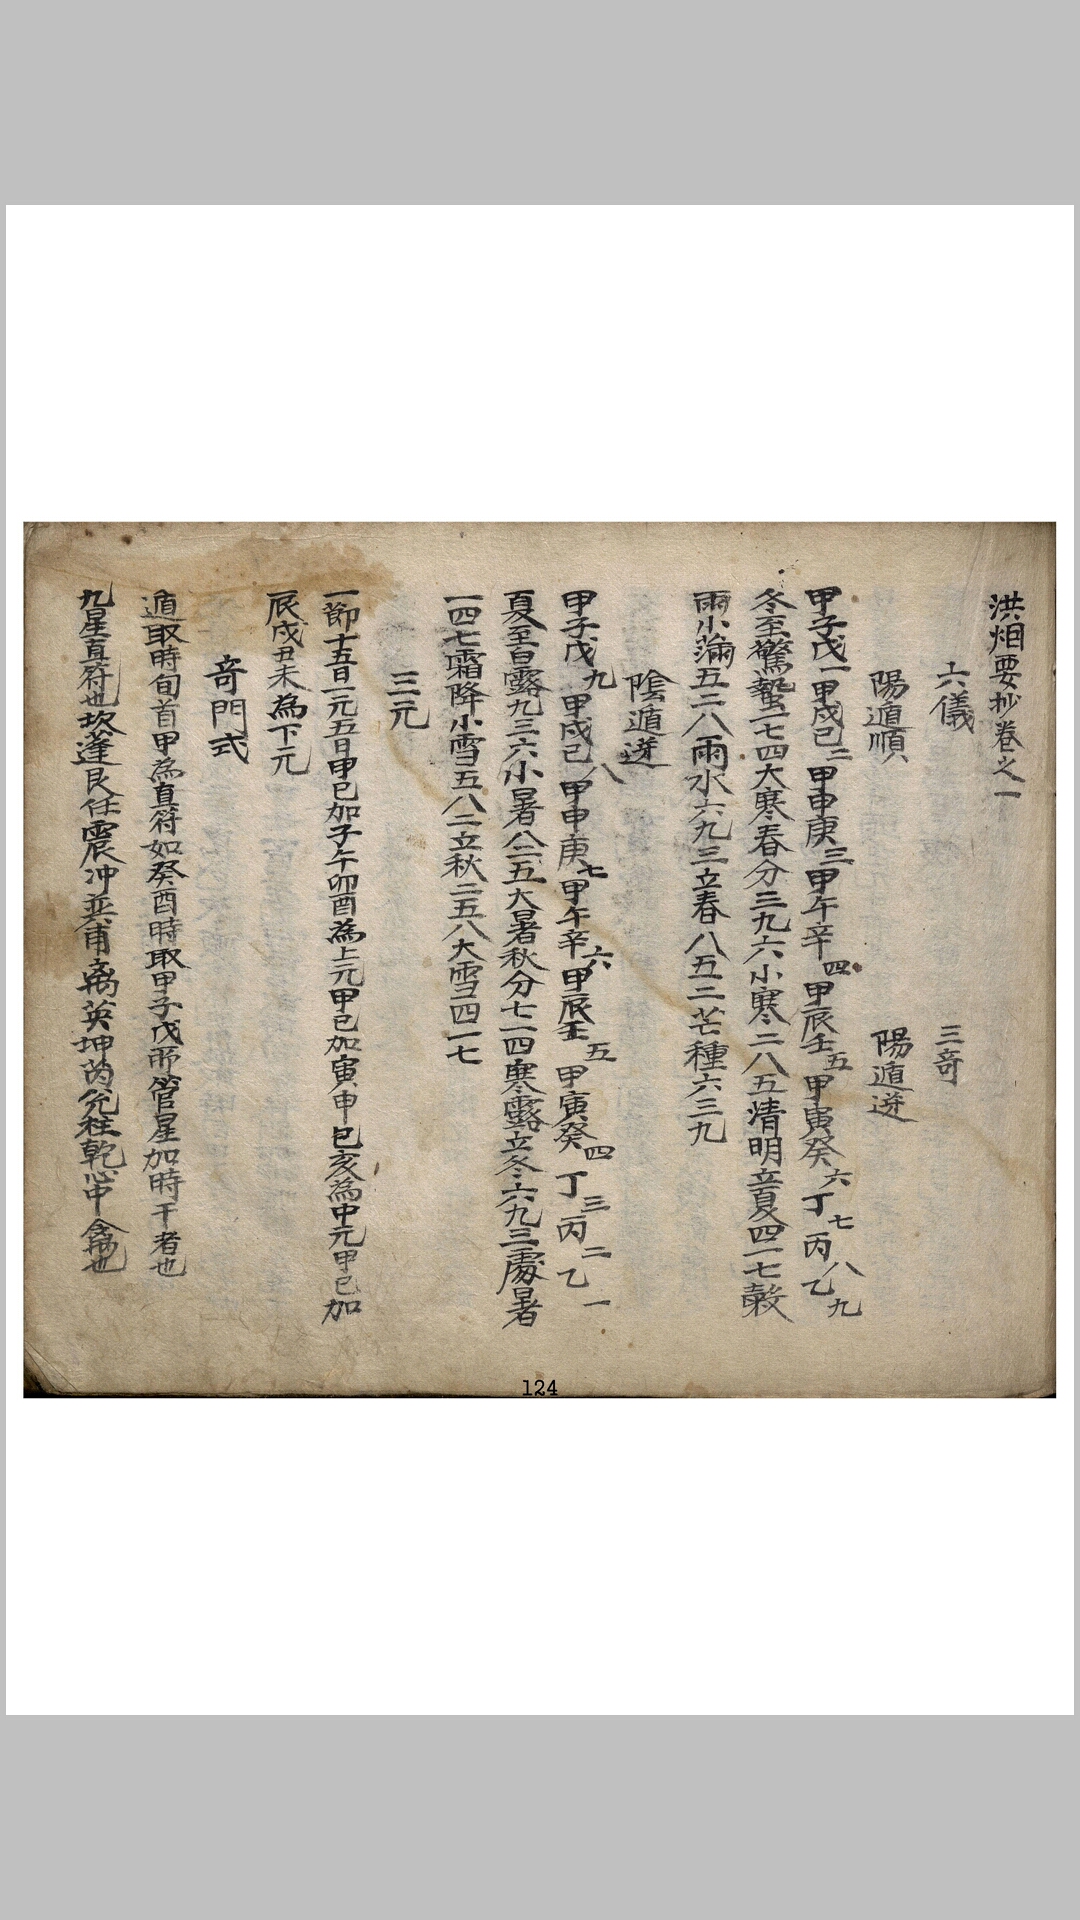 洪烟要抄卷之一
六儀　三奇
陽遁順　陽遁逆
甲子戊一甲戌己二甲申庚三甲午辛四甲辰壬五甲寅癸六丁七丙八乙九
冬至驚蟄一七四大寒春分三九六小寒二八五清明立夏四一七穀
雨小滿五二八雨水六九三立春八五二芒種六三九
陰遁逆
甲子戊九甲戌己八甲申庚七甲午辛六甲辰壬五甲寅癸四丁三丙二乙一
夏至白露九三六小暑八二五大暑秋分七一四寒露立冬六九三處暑
一四七霜降小雪五八二立秋二五八大雪四一七
三元
一節十五日一元五日甲己加子午卯酉為上元甲己加寅申巳亥為中元甲己加
辰戌丑未為下元
奇門式
遁取時旬首甲為直符如癸酉時取甲子戊所管星加時干者也
九星直符也坎蓬艮任震冲巽甫离英坤芮兌柱乾心中禽也
124